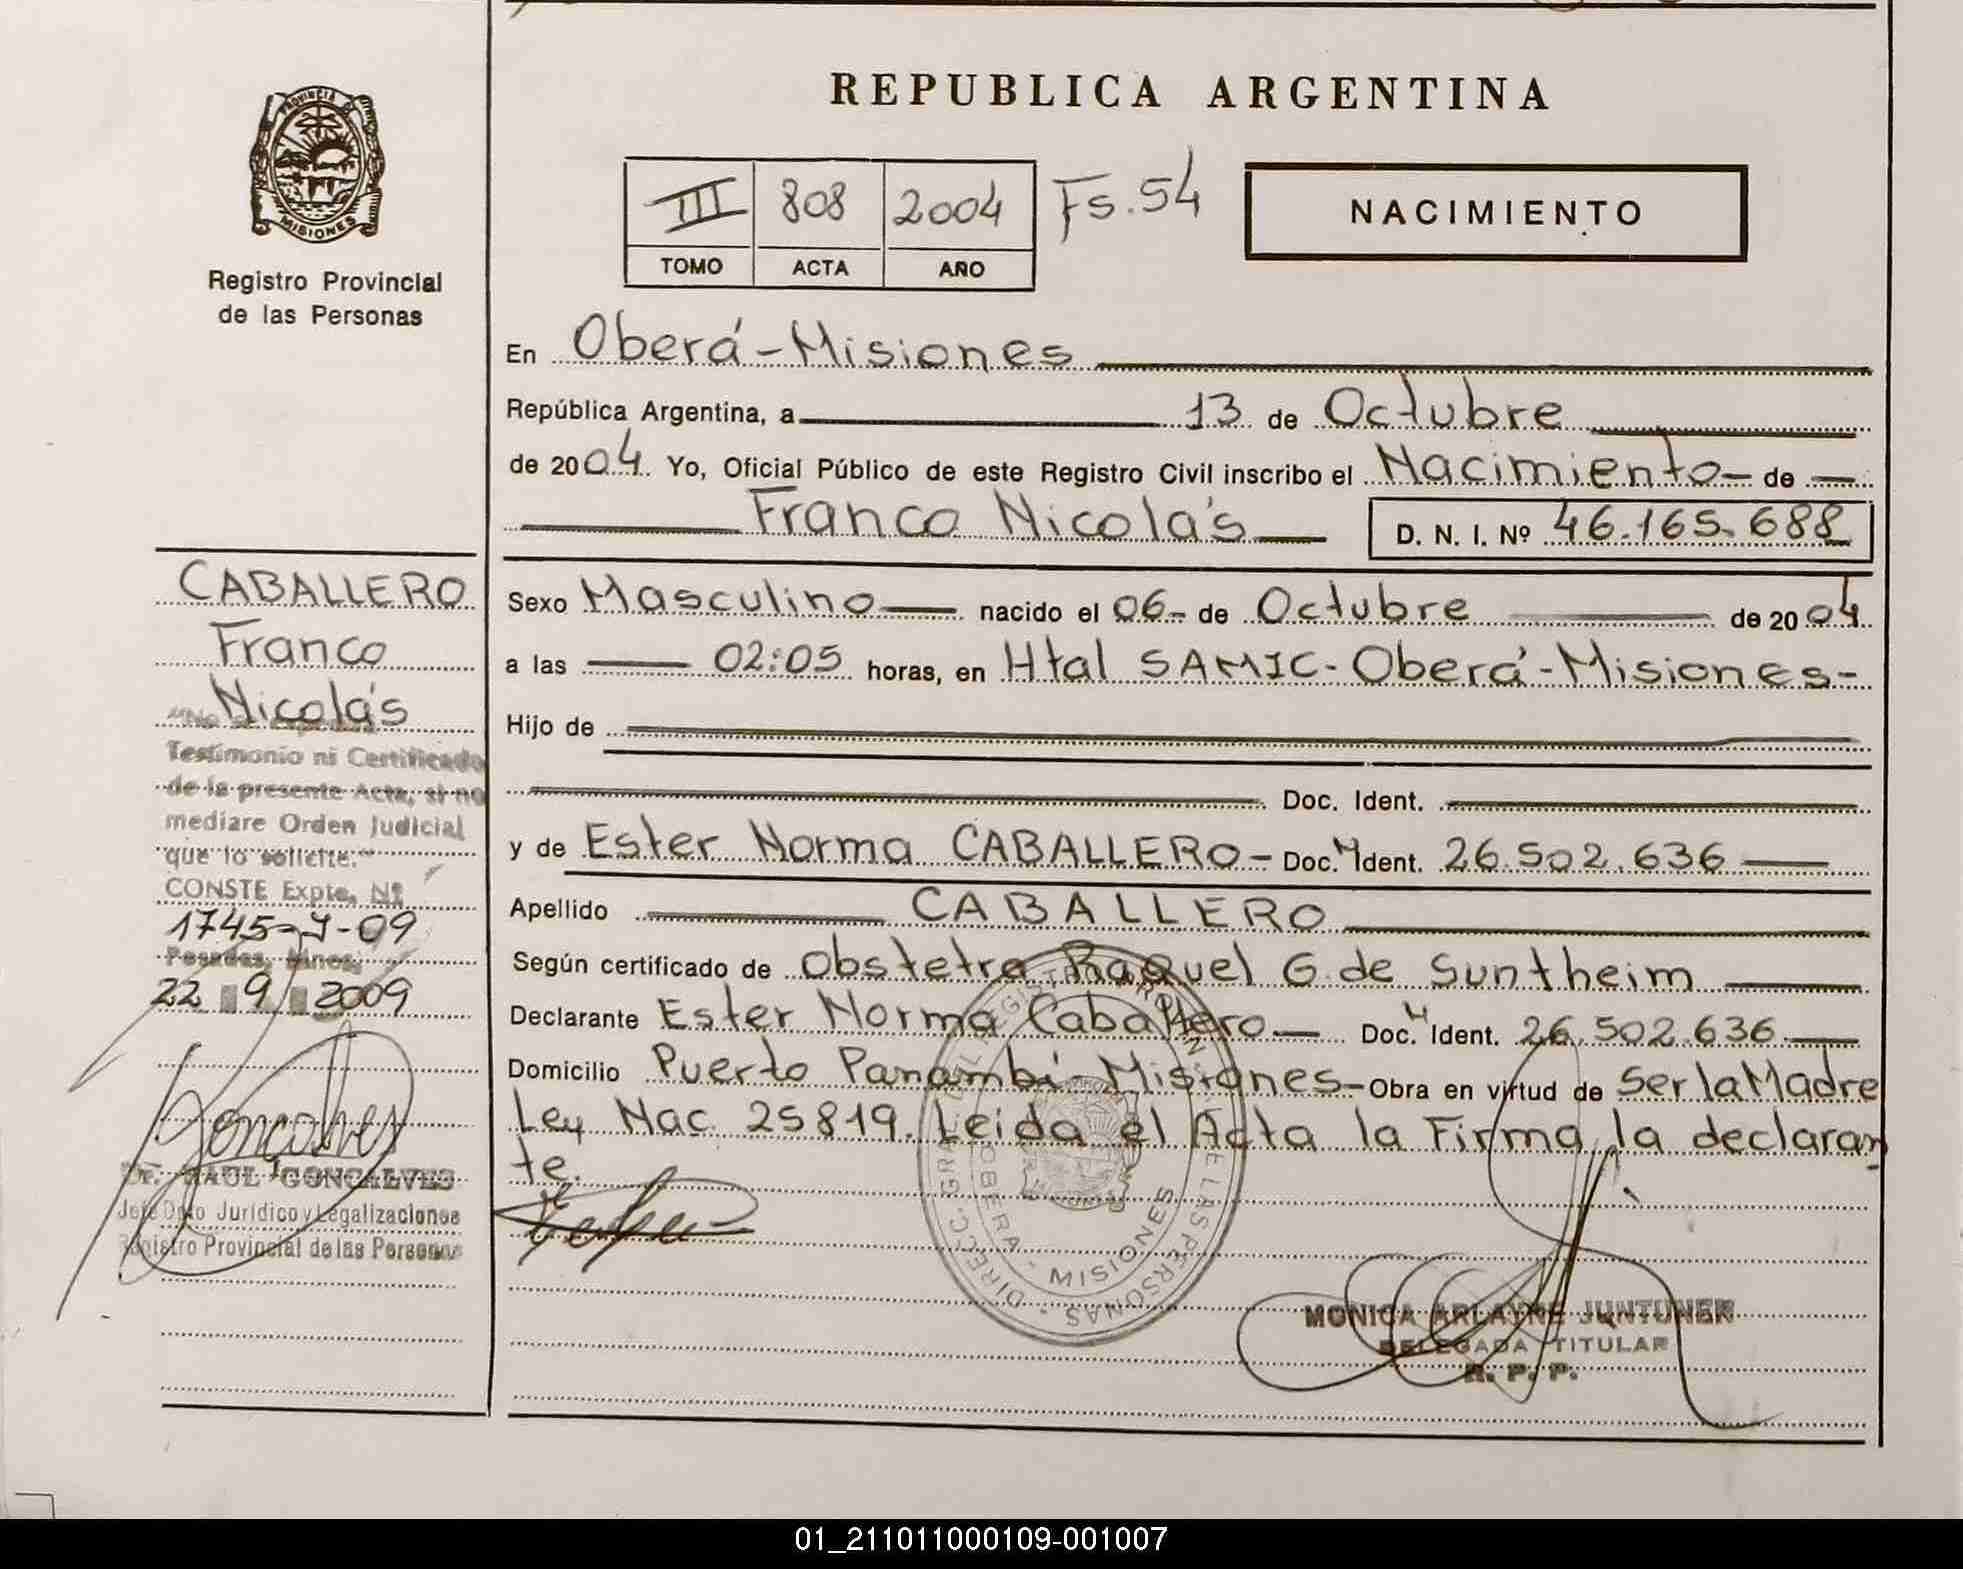 REPUBLICA ARGENTINA
PROVINCIA DE
MISIONES
Registro Provincial
de las Personas
III 808 2004 Fs. 54
TOMO ACTA AÑO
NACIMIENTO
En Oberá-Misiones
República Argentina, a 13 de Octubre
de 2004. Yo, Oficial Público de este Registro Civil inscribo el Nacimiento- de
Franco Nicolás D. N. I. Nº 46.165.688
Sexo Masculino nacido el 06- de Octubre de 2004
a las 02:05 horas, en Htal SAMIC-Oberá-Misiones-
Hijo de
Doc. Ident.
y de Ester Norma CABALLERO- Doc. Ident. 26.502.636
Apellido CABALLERO
Según certificado de Obstetra Raquel G. de Suntheim
Declarante Ester Norma Caballero- Doc. Ident. 26.502.636
Domicilio Puerto Panambí-Misiones- Obra en virtud de Ser la Madre
Ley Nac. 25819. Leida el Acta la Firma la declaran
te.
OBERA - MISIONES
DE LAS PERSONAS - DIRECC. GRAL.
MONICA ARLAYNE JUNTUNEN
DELEGADA TITULAR
R. P. P.
CABALLERO
Franco
Nicolás
Testimonio ni Certificado
de la presente Acta, si no
mediare Orden Judicial
que lo solicite."
CONSTE Expte, Nº
1745-J-09
Posadas, Mnes,
22 9 2009
Goncalves
Dr. RAUL GONCALVES
Jefe Dpto Jurídico y Legalizaciones
Registro Provincial de las Personas
01_211011000109-001007